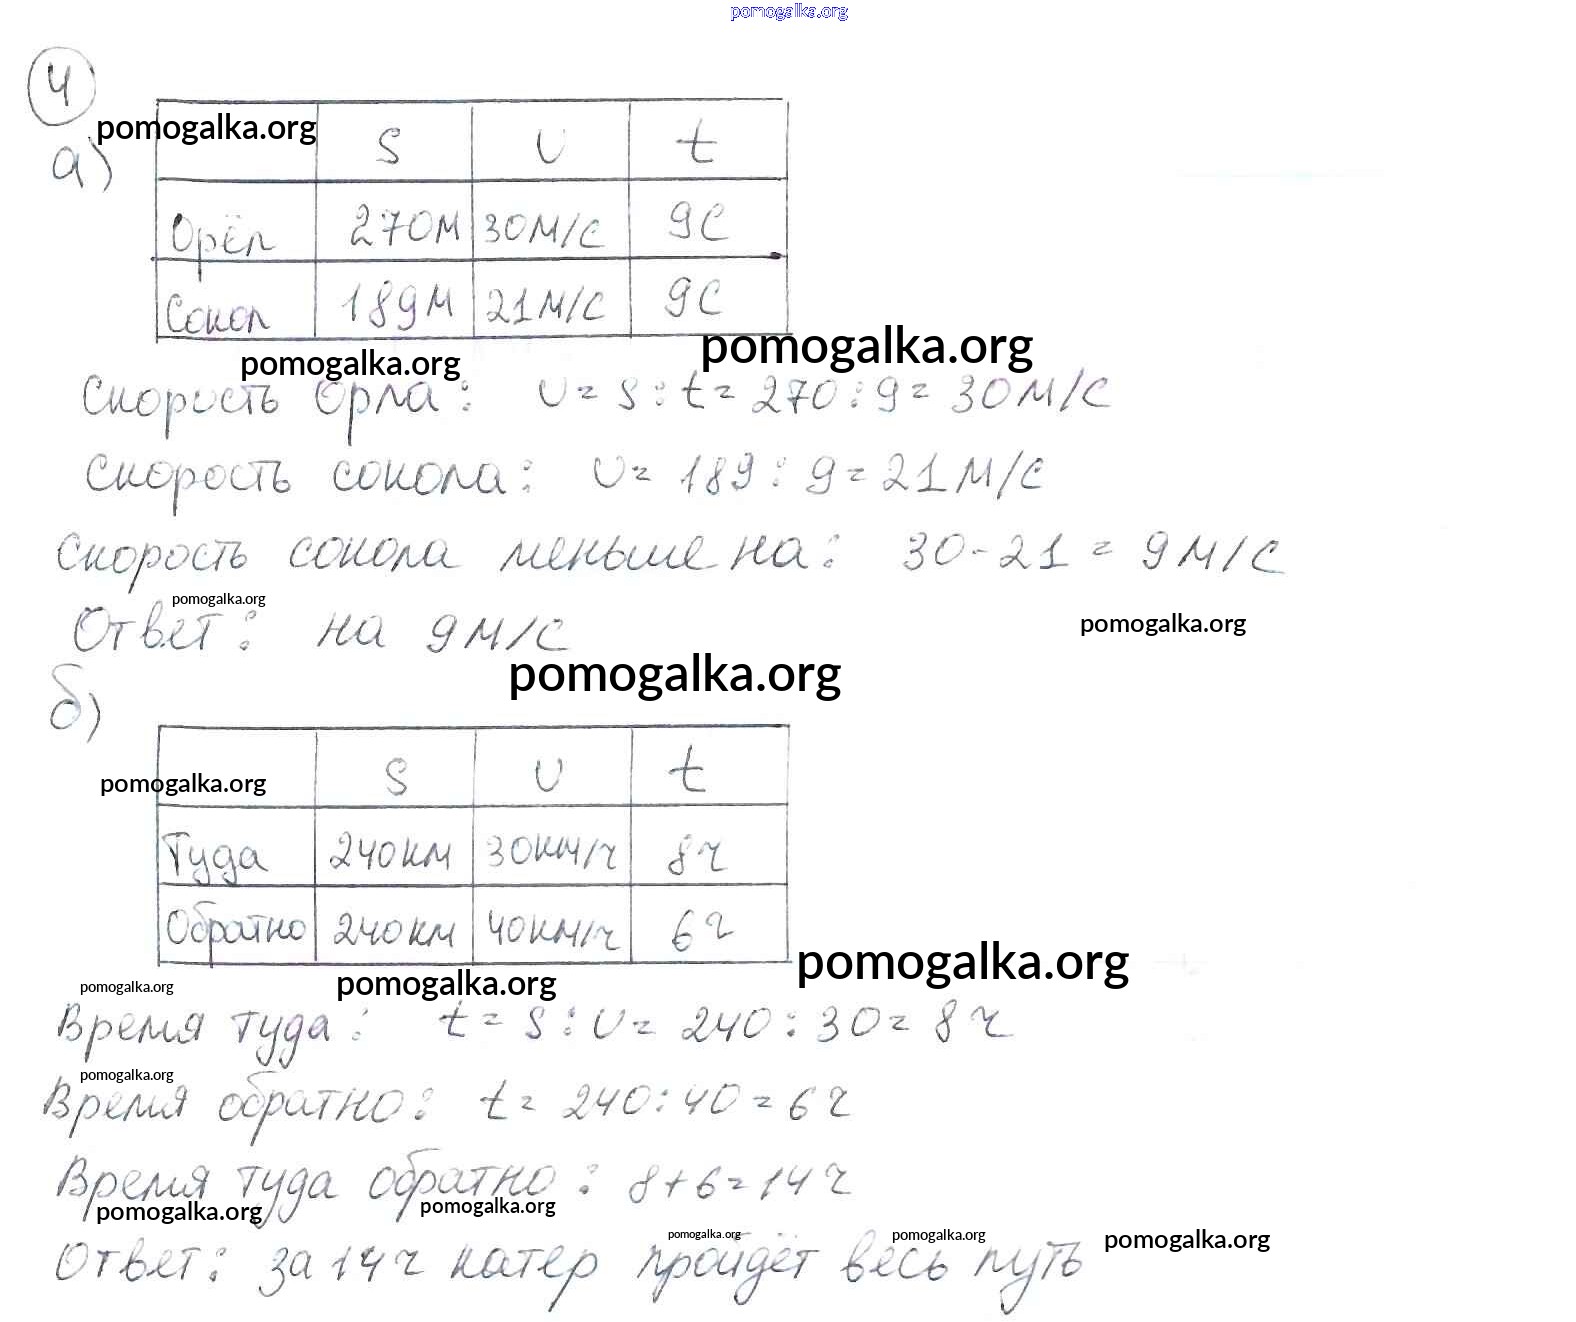 pomogalka.org
4
pomogalka.org
а)
S υ t
Орёл 270м 30м/с 9с
Сокол 189м 21м/с 9с
pomogalka.org
pomogalka.org
Скорость орла: υ = s : t = 270 : 9 = 30м/с
Скорость сокола: υ = 189 : 9 = 21м/с
Скорость сокола меньше на: 30 - 21 = 9м/с
pomogalka.org
Ответ: на 9м/с
pomogalka.org
pomogalka.org
б)
S υ t
pomogalka.org
Туда 240км 30км/ч 8ч
Обратно 240км 40км/ч 6ч
pomogalka.org
pomogalka.org
pomogalka.org
Время туда: t = s : υ = 240 : 30 = 8ч
pomogalka.org
Время обратно: t = 240 : 40 = 6ч
Время туда обратно: 8+6=14ч
pomogalka.org
pomogalka.org
pomogalka.org
pomogalka.org
pomogalka.org
Ответ: за 14ч катер пройдёт весь путь